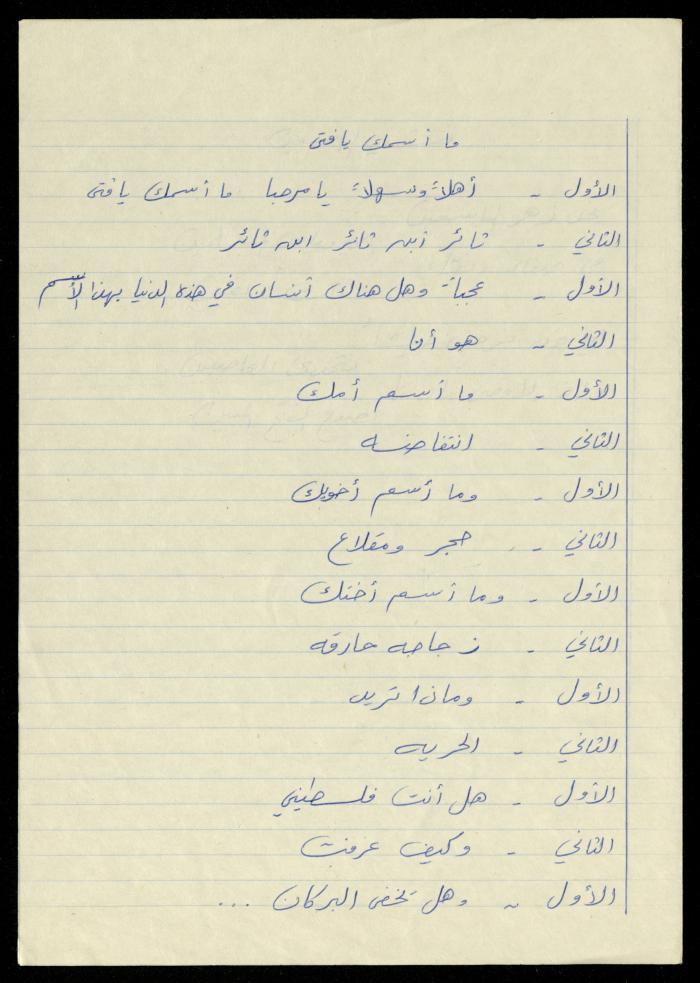 ما أسمك يا فتى
الأول - أهلاً وسهلاً يا مرحبا ما أسمك يا فتى
الثاني - ثائر أبن ثائر ابن ثائر
الأول - عجباً وهل هناك أنسان في هذه الدنيا بهذا الأسم
الثاني - هو أنا
الأول - ما أسم أمك
الثاني - انتفاضه
الأول - وما أسم أخويك
الثاني - حجر ومقلاع
الأول - وما أسم أختك
الثاني - زجاجه حارقه
الأول - وماذا تريد
الثاني - الحريه
الأول - هل أنت فلسطيني
الثاني - وكيف عرفت
الأول - وهل يخفى البركان ...